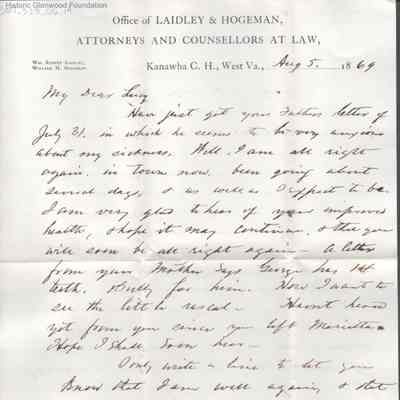 Historic Glenwood Foundation
Office of LAIDLEY & HOGEMAN,
ATTORNEYS AND COUNSELLORS AT LAW,
WM. SYDNEY LAIDLEY,
WILLIAM H. HOGEMAN.
Kanawha C. H., West Va., Aug 5. 1869
My Dear Lucy
Have just got your Fathers letter of
July 31. in which he seems to be very anxious
about my sickness. Well, I am all right
again. in town now. been going about
several days, & as well as I expect to be.
I am very glad to hear of your improved
health, & hope it may continue, & that you
will soon be all right again — A letter
from your Mother says George has 14
teeth. Bully for him. How I want to
see the little rascal — Havnt heard
yet from you since you left Marietta
Hope I shall soon hear —
I only write a line to let you
Know that I am well again, & that